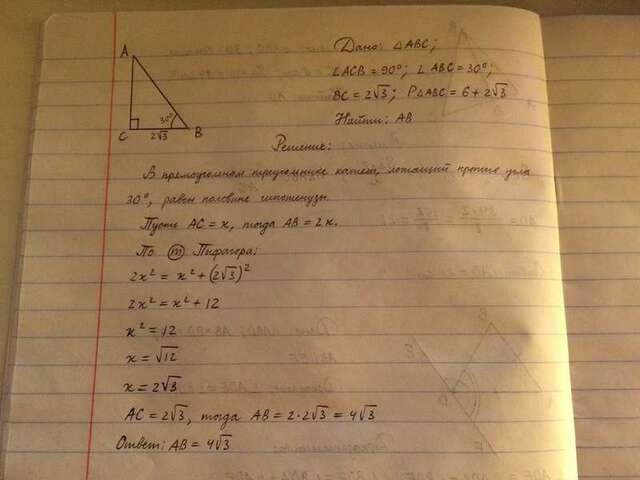 A
C
30°
2√3
B
Дано: △ABC;
∠ACB = 90°; ∠ABC = 30°;
BC = 2√3; P△ABC = 6 + 2√3
Найти: AB
Решение:
В прямоугольном треугольнике катет, лежащий против угла
30°, равен половине гипотенузы.
Пусть AC = x, тогда AB = 2x.
По т Пифагора:
2x² = x² + (2√3)²
2x² = x² + 12
x² = 12
x = √12
x = 2√3
AC = 2√3, тогда AB = 2·2√3 = 4√3
Ответ: AB = 4√3